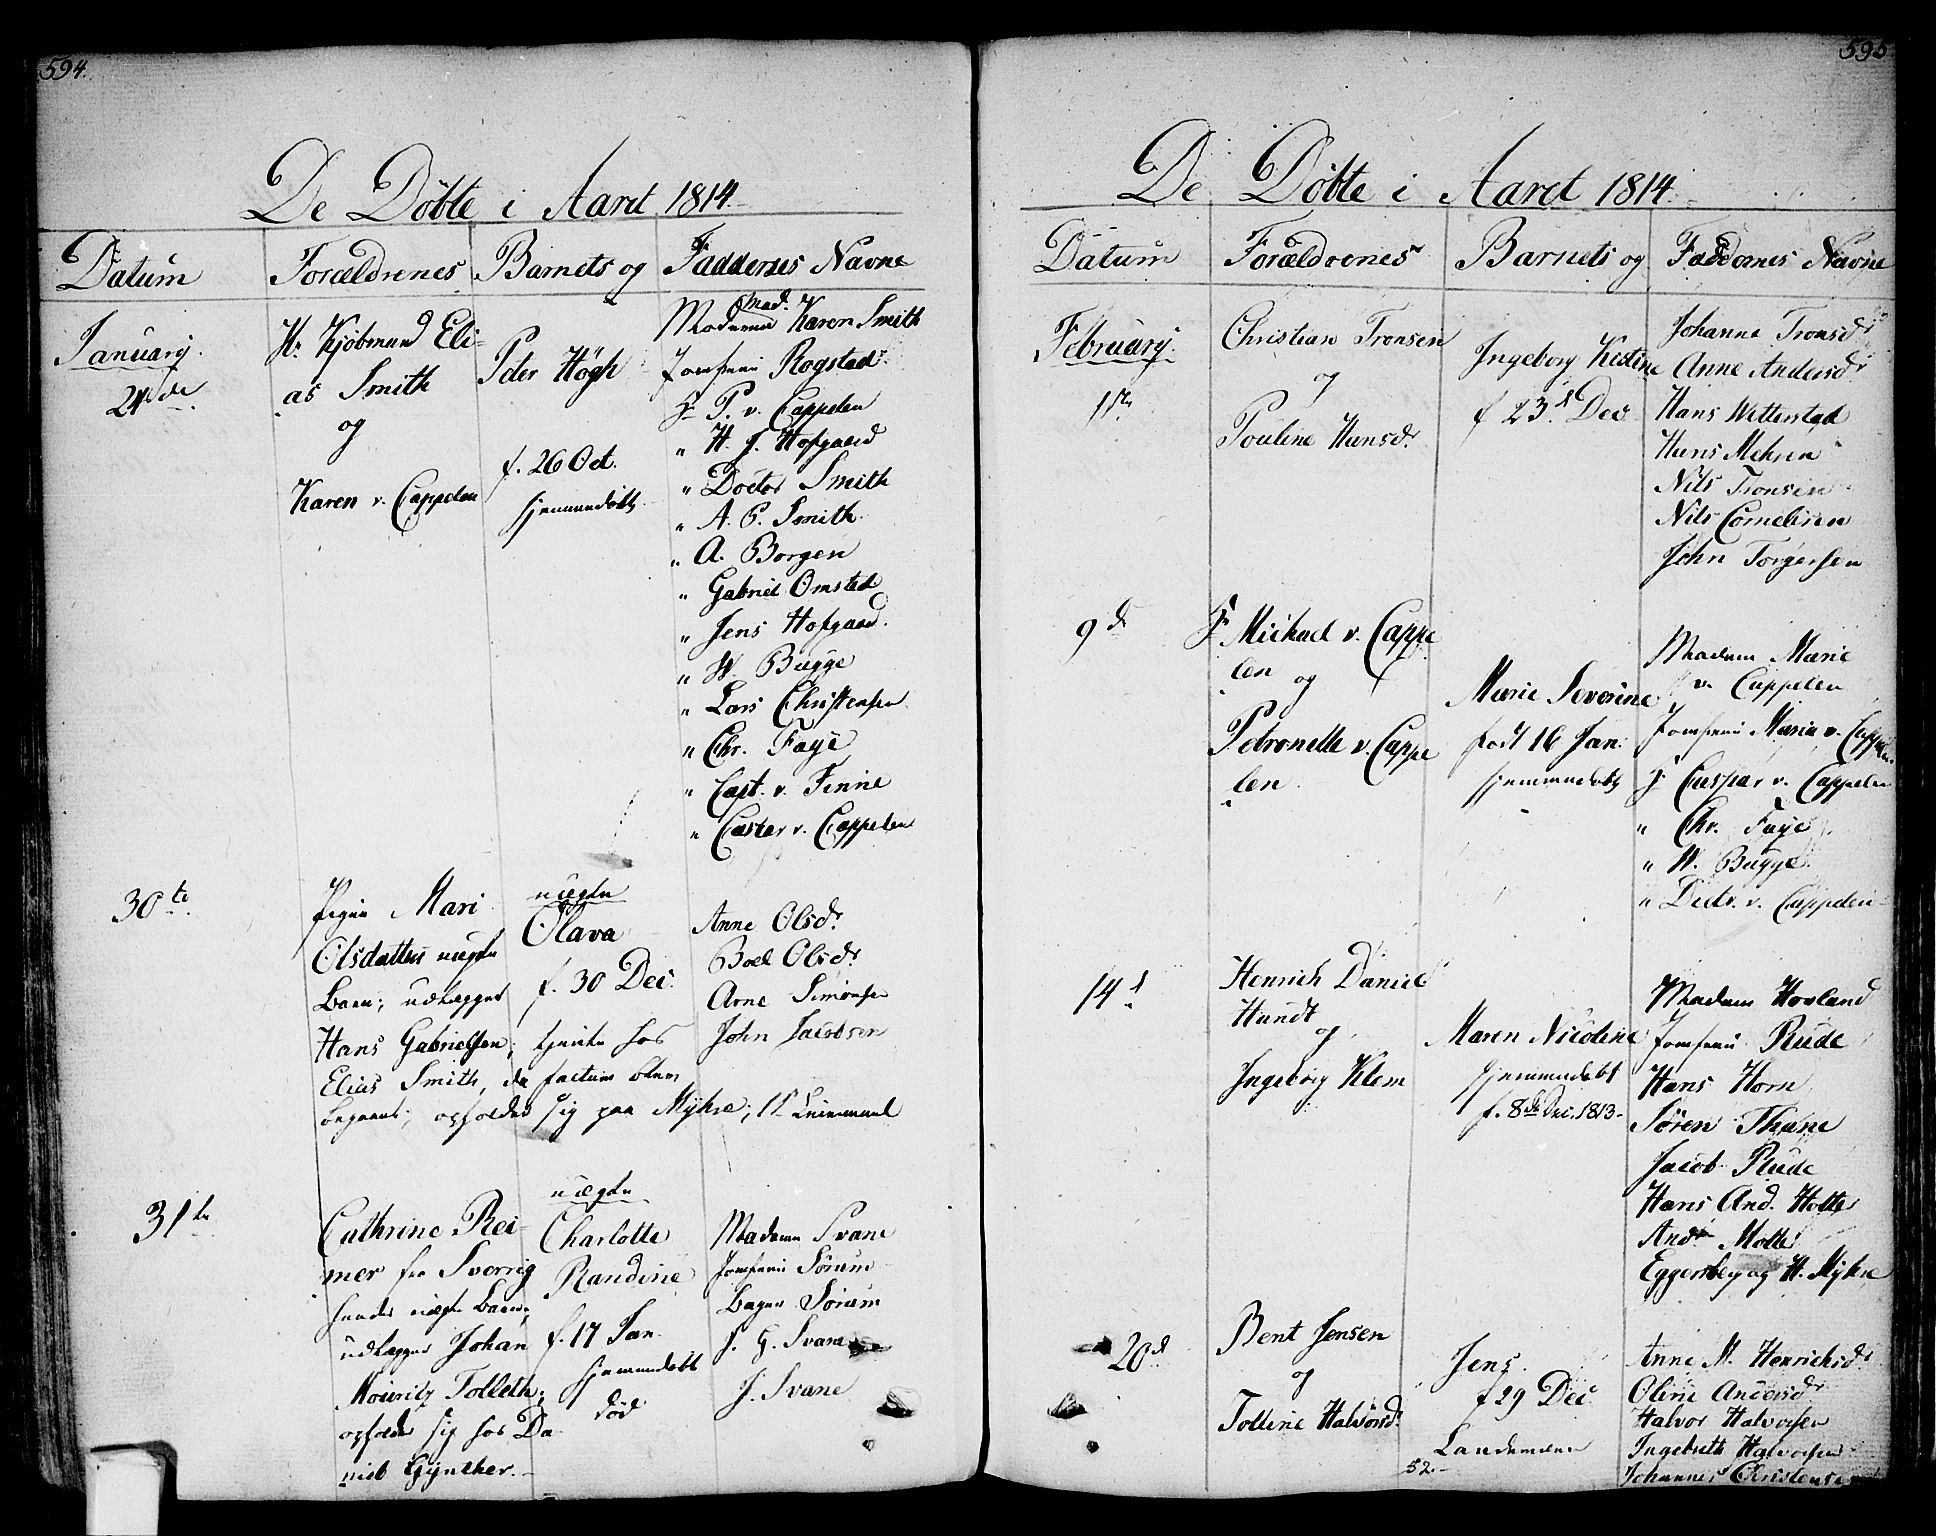 594.
De Döbte i Aaret 1814.
Datum
Forældrenes
Barnets og
Faddernes Navne
January.
24de
Hr Kjöbmand Eli-
as Smith
og
Karen v. Cappelen
Peter Högh
f. 26 Oct.
hjemmedöbt
Mad.
Madame Karen Smith
Jomfrue Rogstad
Hr P. v. Cappelen
" H. J. Hofgaard
" Doctor Smith
" A. P. Smith
" A. Borgen
" Gabriel Omsted
" Jens Hofgaard.
" W. Bugge
" Lars Christensen
" Chr. Faye
" Capt. v. Finne
" Caster v. Cappelen
30te
Pigen Mari
Olsdatters uægte
Barn; udlægger
Hans Gabrielsen;
Elias Smith, da
uægte
Olava
f. 30 Dec.
tjente hos
factum blev
begaaet; opholder sig paa Myhre; 1ste Leiermaal
Anne Olsdr
Boel Olsdr
Arne Simonsen
John Jacobsen
31te
Cathrine Rei-
mer fra Sverrig
hendes uægte Barn,
udlægger Johan
Mouritz Tolleth;
opholder sig hos Da
niel Gynther.
uægte
Charlotte
Randine
f. 17 Jan.
hjemmedöbt
död
Madame Svane
Jomfrue Sörum
Bager Sörum
J. G. Svane
J. Svane
595
De Döbte i Aaret 1814
Datum
Forældrenes
Barnets og
Faddernes Navne
February.
1ste
Christian Tronsen
og
Pouline Hansdr
Ingeborg Kistine
f 23d Dec
Johanne Tronsdr
Anne Andersdr
Hans Wetterstad
Hans Mehren
Nils Tronsen
Nils Cornelisen
John Torgersen
9de
Hr Michael v. Cappe
len og
Petronelle v. Cappe
len.
Marie Severine
født 16 Jan.
hjemmedöbt
Madam Marie
v. Cappelen
Jomfrue Maria v. Cappelen
Hr Caspar v. Cappelen
" Chr. Faye
" W. Bugge
" Didr. v. Cappelen
14d
Henrich Daniel
Hundt
og
Ingeborg Klem
Maren Nicoline
hjemmedöbt
f. 8de Dec. 1813
Madam Hovland
Jomfrue Rude
Hans Horn
Sören Thane
Jacob Rude
Hans And. Holte
Andr Molte
Eggersberg og H. Myhre
20d
Bent Jensen
og
Tolline Halvorsd.
Jens.
f 29 Dec
Landemænn
52.
Anne M. Henrichsdr
Oline Andersdr
Halvor Halvorsen
Ingebreth Halvorsen
Johannes Christensen